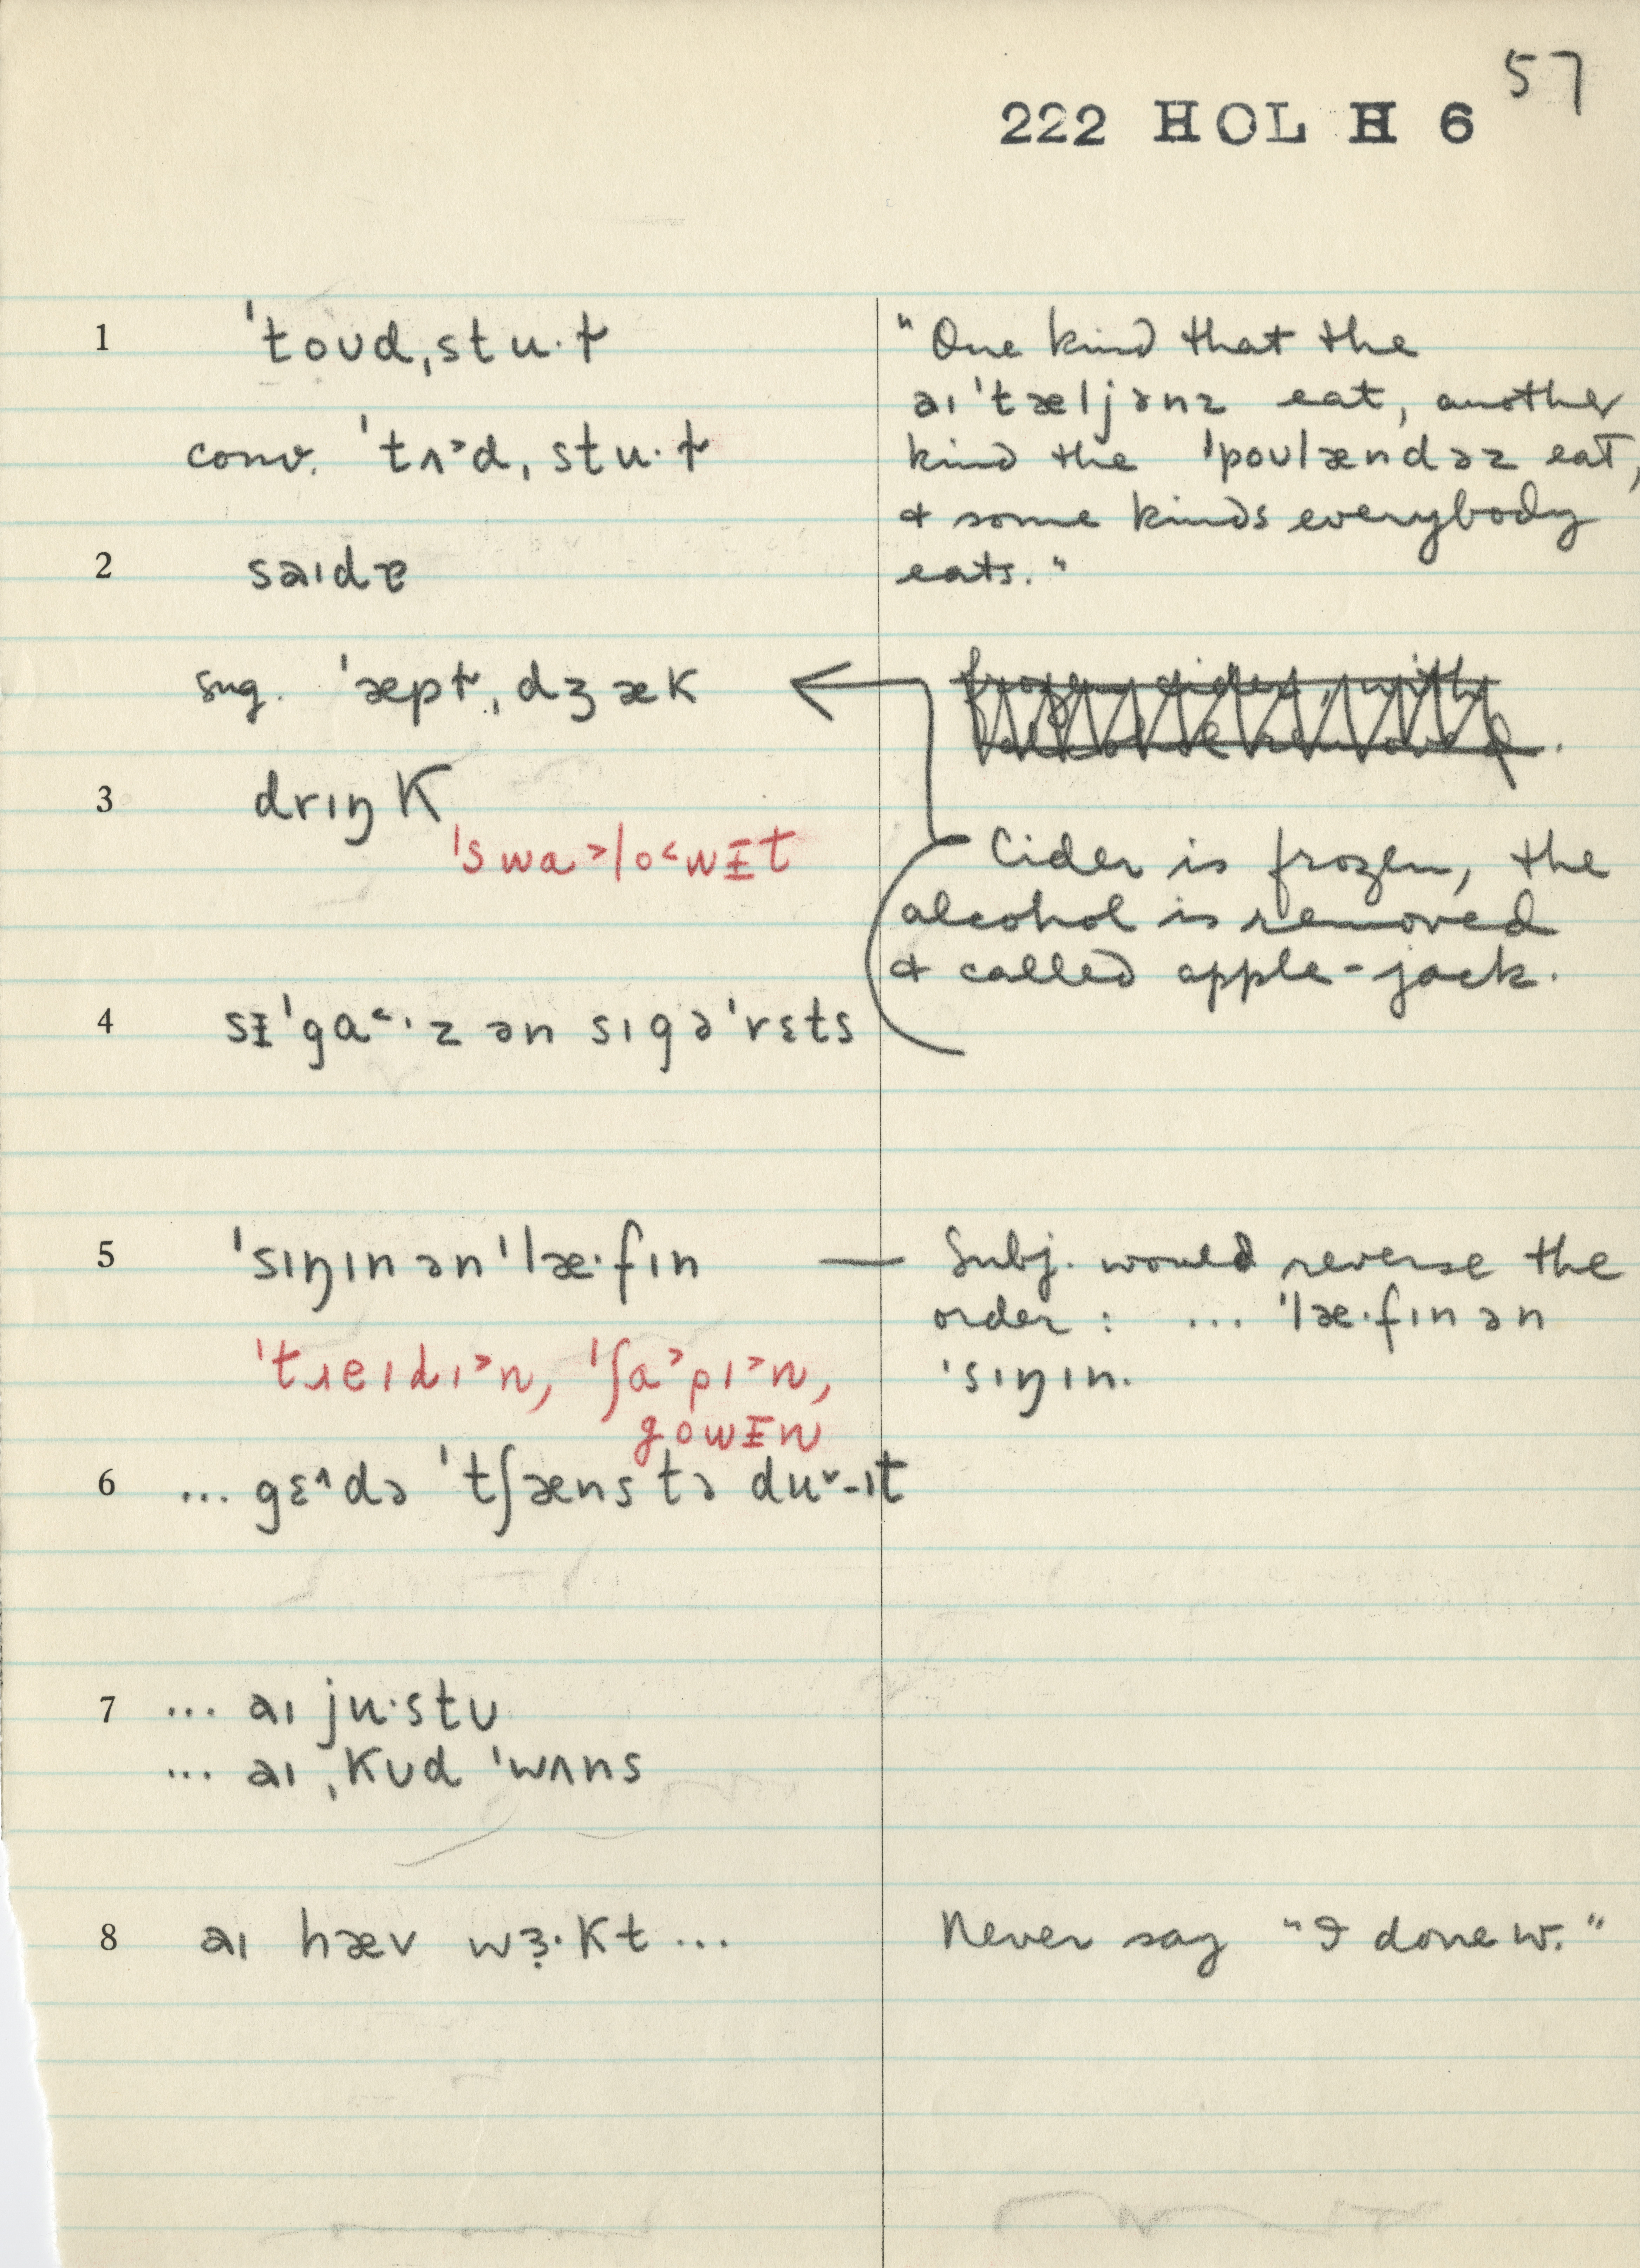 57
222 HOL H 6
1 ˈtoʊd,stu·ɫ
conv. ˈtʌ˃d, stu·ɫ
2 saɪdɐ
sug. ˈæpɫ̩,dʒæk
3 drɪŋk
ˈswa˃lo˂wɪ̵t
4 sɪ̵ˈga˂·z ən sɪgəˈrɛts
5 ˈsɪŋɪn ənˈlæ·fɪn —
ˈtɹeɪdɪ˃n, ˈʃa˃pɪ˃n,
gowɪ̵n
6 ... gɛ^də ˈtʃæns tə duᵛ-ɪt
7 ... aɪ ju·stʊ
... aɪ ˌkʊd ˈwʌns
8 aɪ hæv wɜ̣·kt ...
"One kind that the
aɪˈtæljənz eat, another
kind the ˈpoʊlændəz eat,
& some kinds everybody
eats."
frozen cider, with
alcohol removed.
Cider is frozen, the
alcohol is removed
& called apple-jack.
Subj. would reverse the
order: ... ˈlæ·fɪn ən
ˈsɪŋɪn.
Never say "I done w."